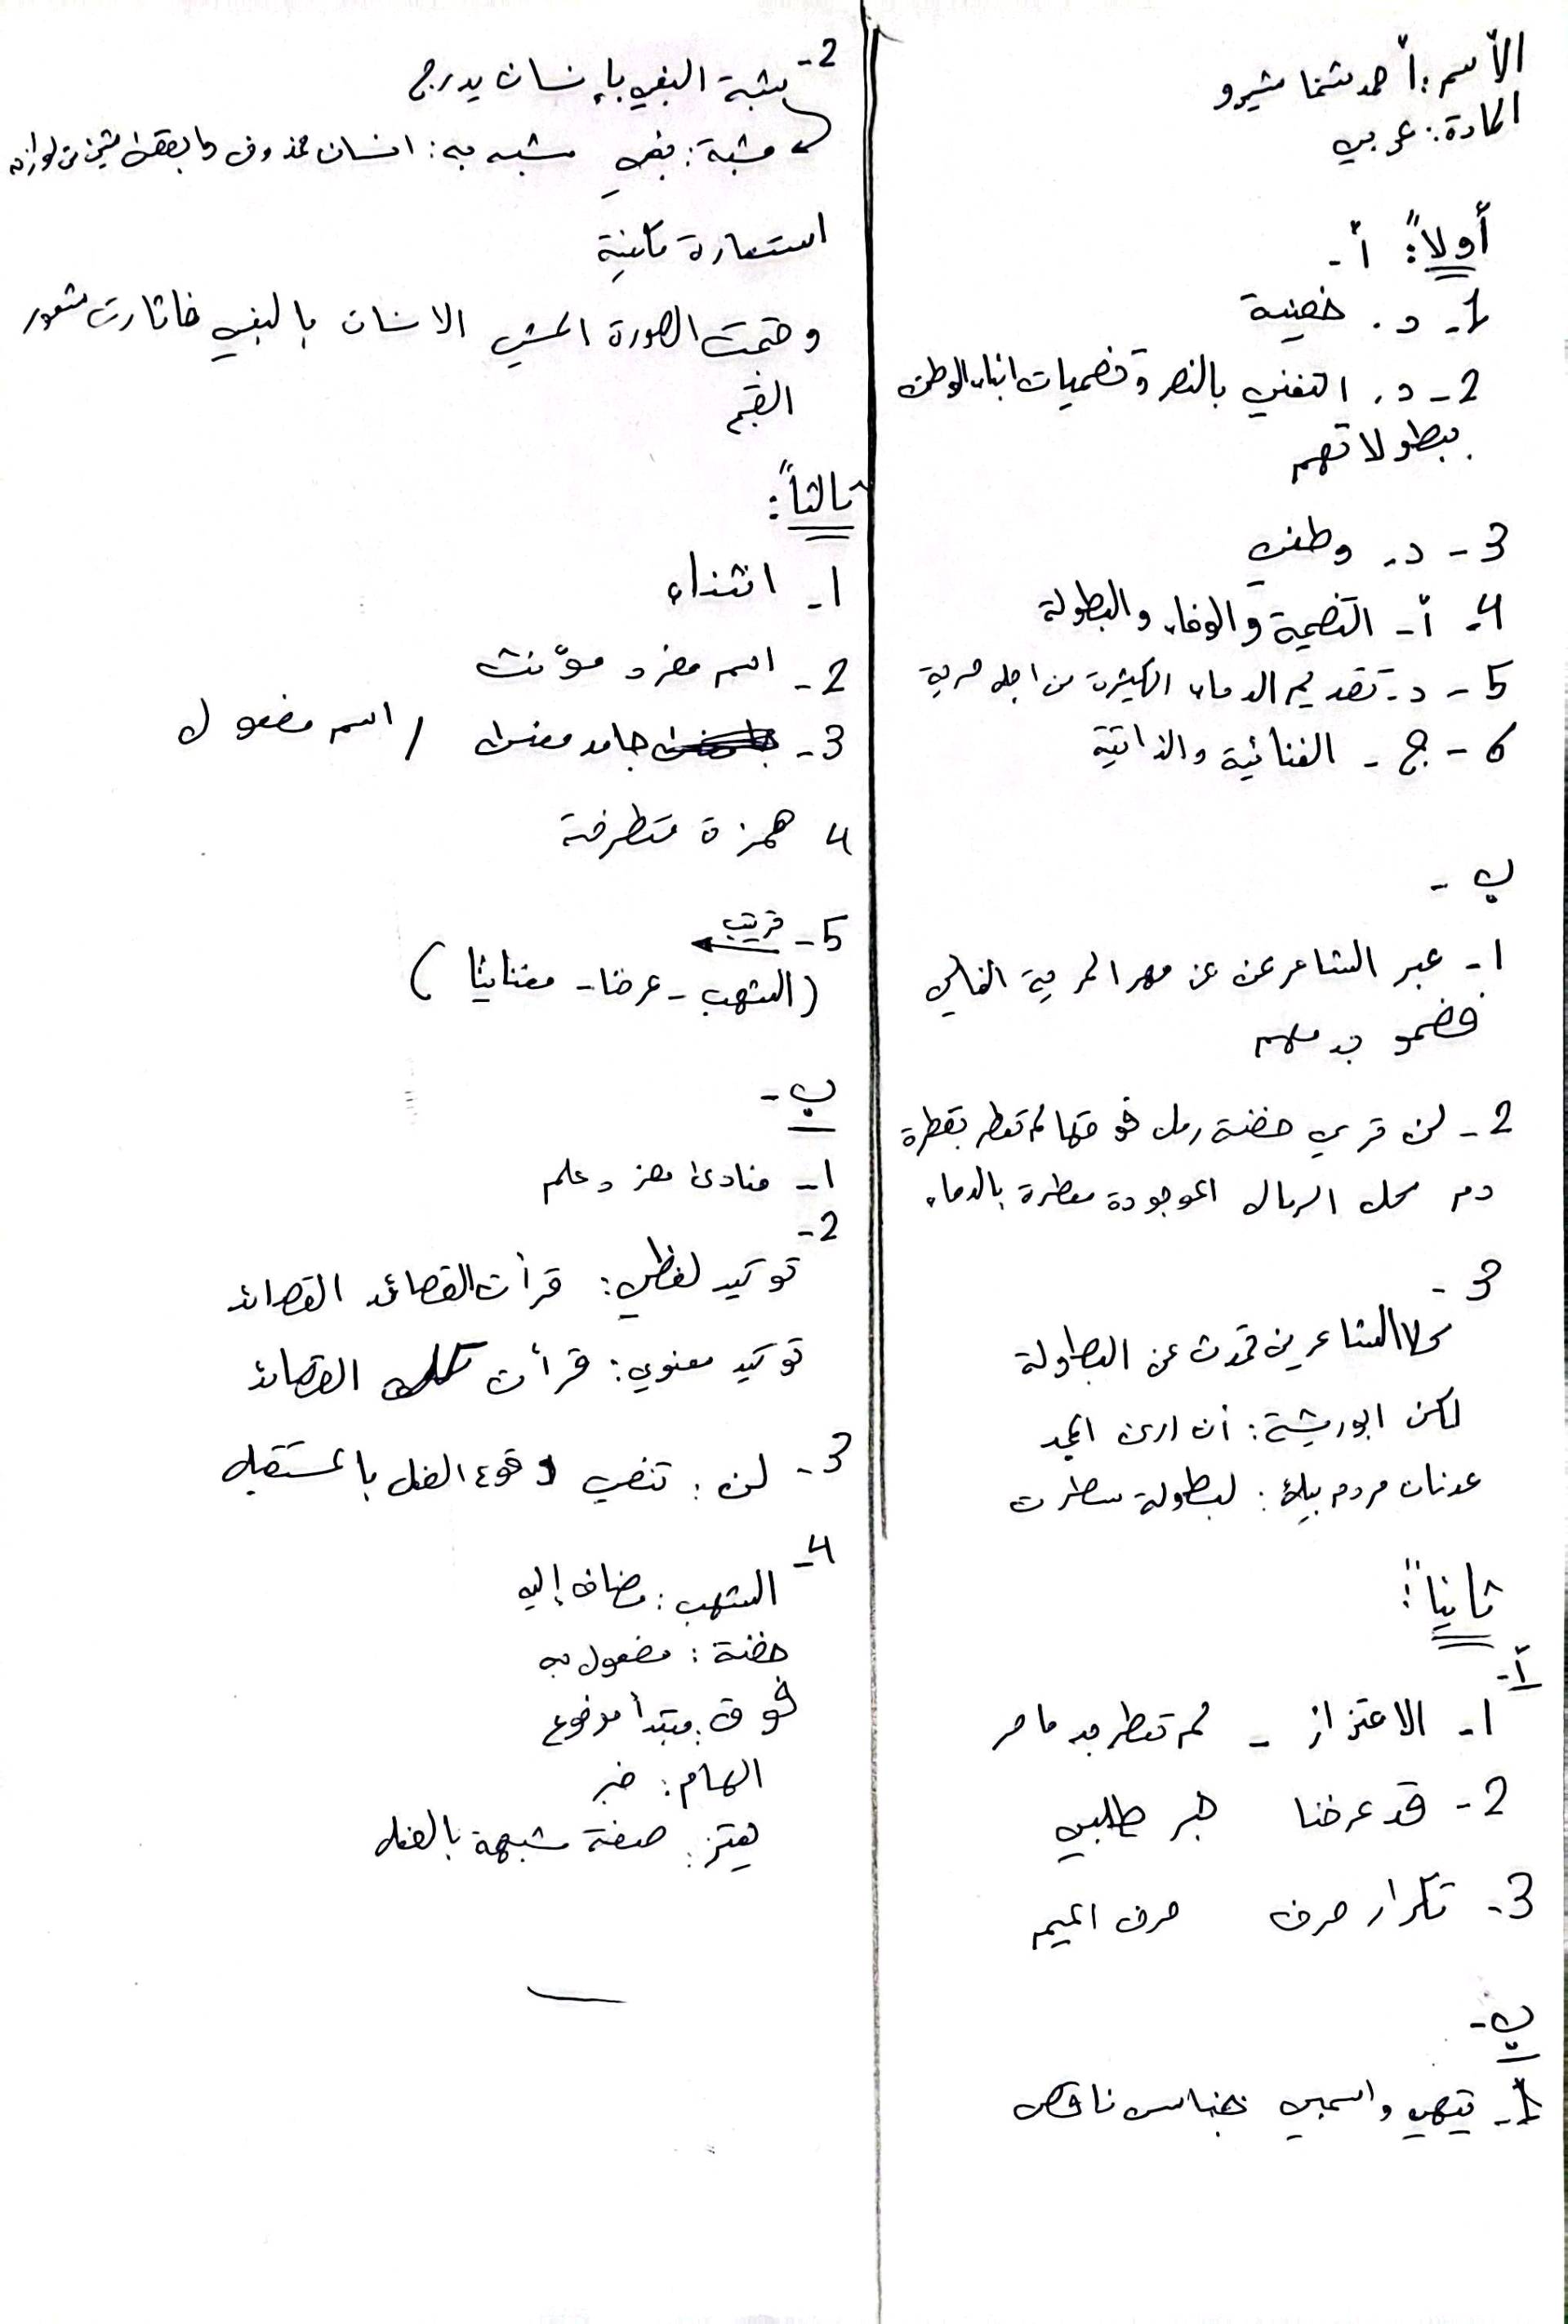 الأسم: أحمد شما شيرو
المادة: عربي
أولاً: أ-
1- د. خفية
2- د. التغني بالنصر وتضحيات ابناء الوطن
ببطولاتهم
3- د. وطني
4- أ- التضحية والوفاء والبطولة
5- د- تقديم الدماء الكثيرة من اجل حرية
6- ج- الغنائية والذاتية
ب-
1- عبر الشاعر عن عن مهر الحرية الغالي
فضحو بدمهم
2- لن تري حفنة رمل فوقها لم تعطر بقطرة
دم كل الرمال الموجودة معطرة بالدماء
3-
كلا الشاعرين تحدث عن البطولة
لكن ابو ريشة: أن ارى المجد
عدنان مردم بيك: لبطولة سطرت
ثانياً:
أ-
1- الاعتزاز - لم تعطر بدما حر
2- قد عرفنا خبر طلبي
3- تكرار حرف حرف الميم
ب-
1- تيهي واسحبي جناس ناقص
2- شبة البغي بإنسان يدرج
مشبة: بغي مشبه به: انسان محذوف وابقى شيئ من لوازمه
استعارة مكنية
وقبحت الصورة المشي الانسان بالبغي فاثارت شعور
القبح
ثالثاً:
1- انتداء
2- اسم مفرد مؤنث
3- جامد معنى / اسم مفعول
4 همزة متطرفة
5- ترتيب
(الشهب - عرفنا - مغنانيا)
ب-
1- منادى مفرد علم
2-
توكيد لفظي: قرأت القصائد القصائد
توكيد معنوي: قرأت كل القصائد
3- لن: تنفي وقوع الفعل بالمستقبل
4-
الشهب: مضاف إليه
حفنة: مفعول به
فوق: مبتدأ مرفوع
الهام: خبر
يهتز: صفة شبهة بالفعل